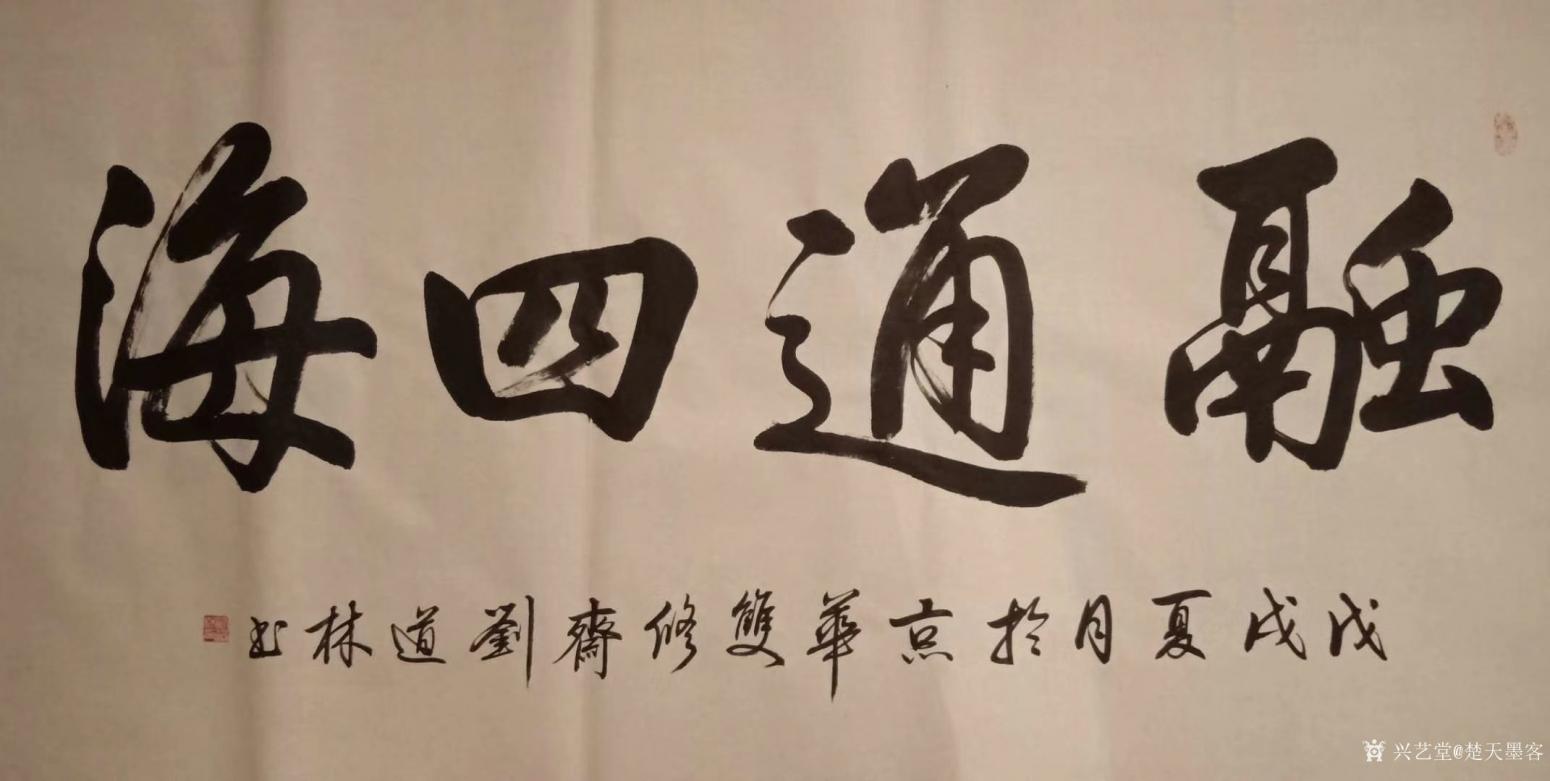 融通四海
戊戌夏月於京華雙修齋劉道林书
兴艺堂@楚天墨客